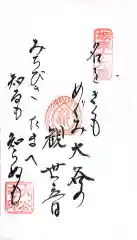 名をきくも
めぐみ大谷の
観世音
みちびきたまへ
知るも
知らぬも